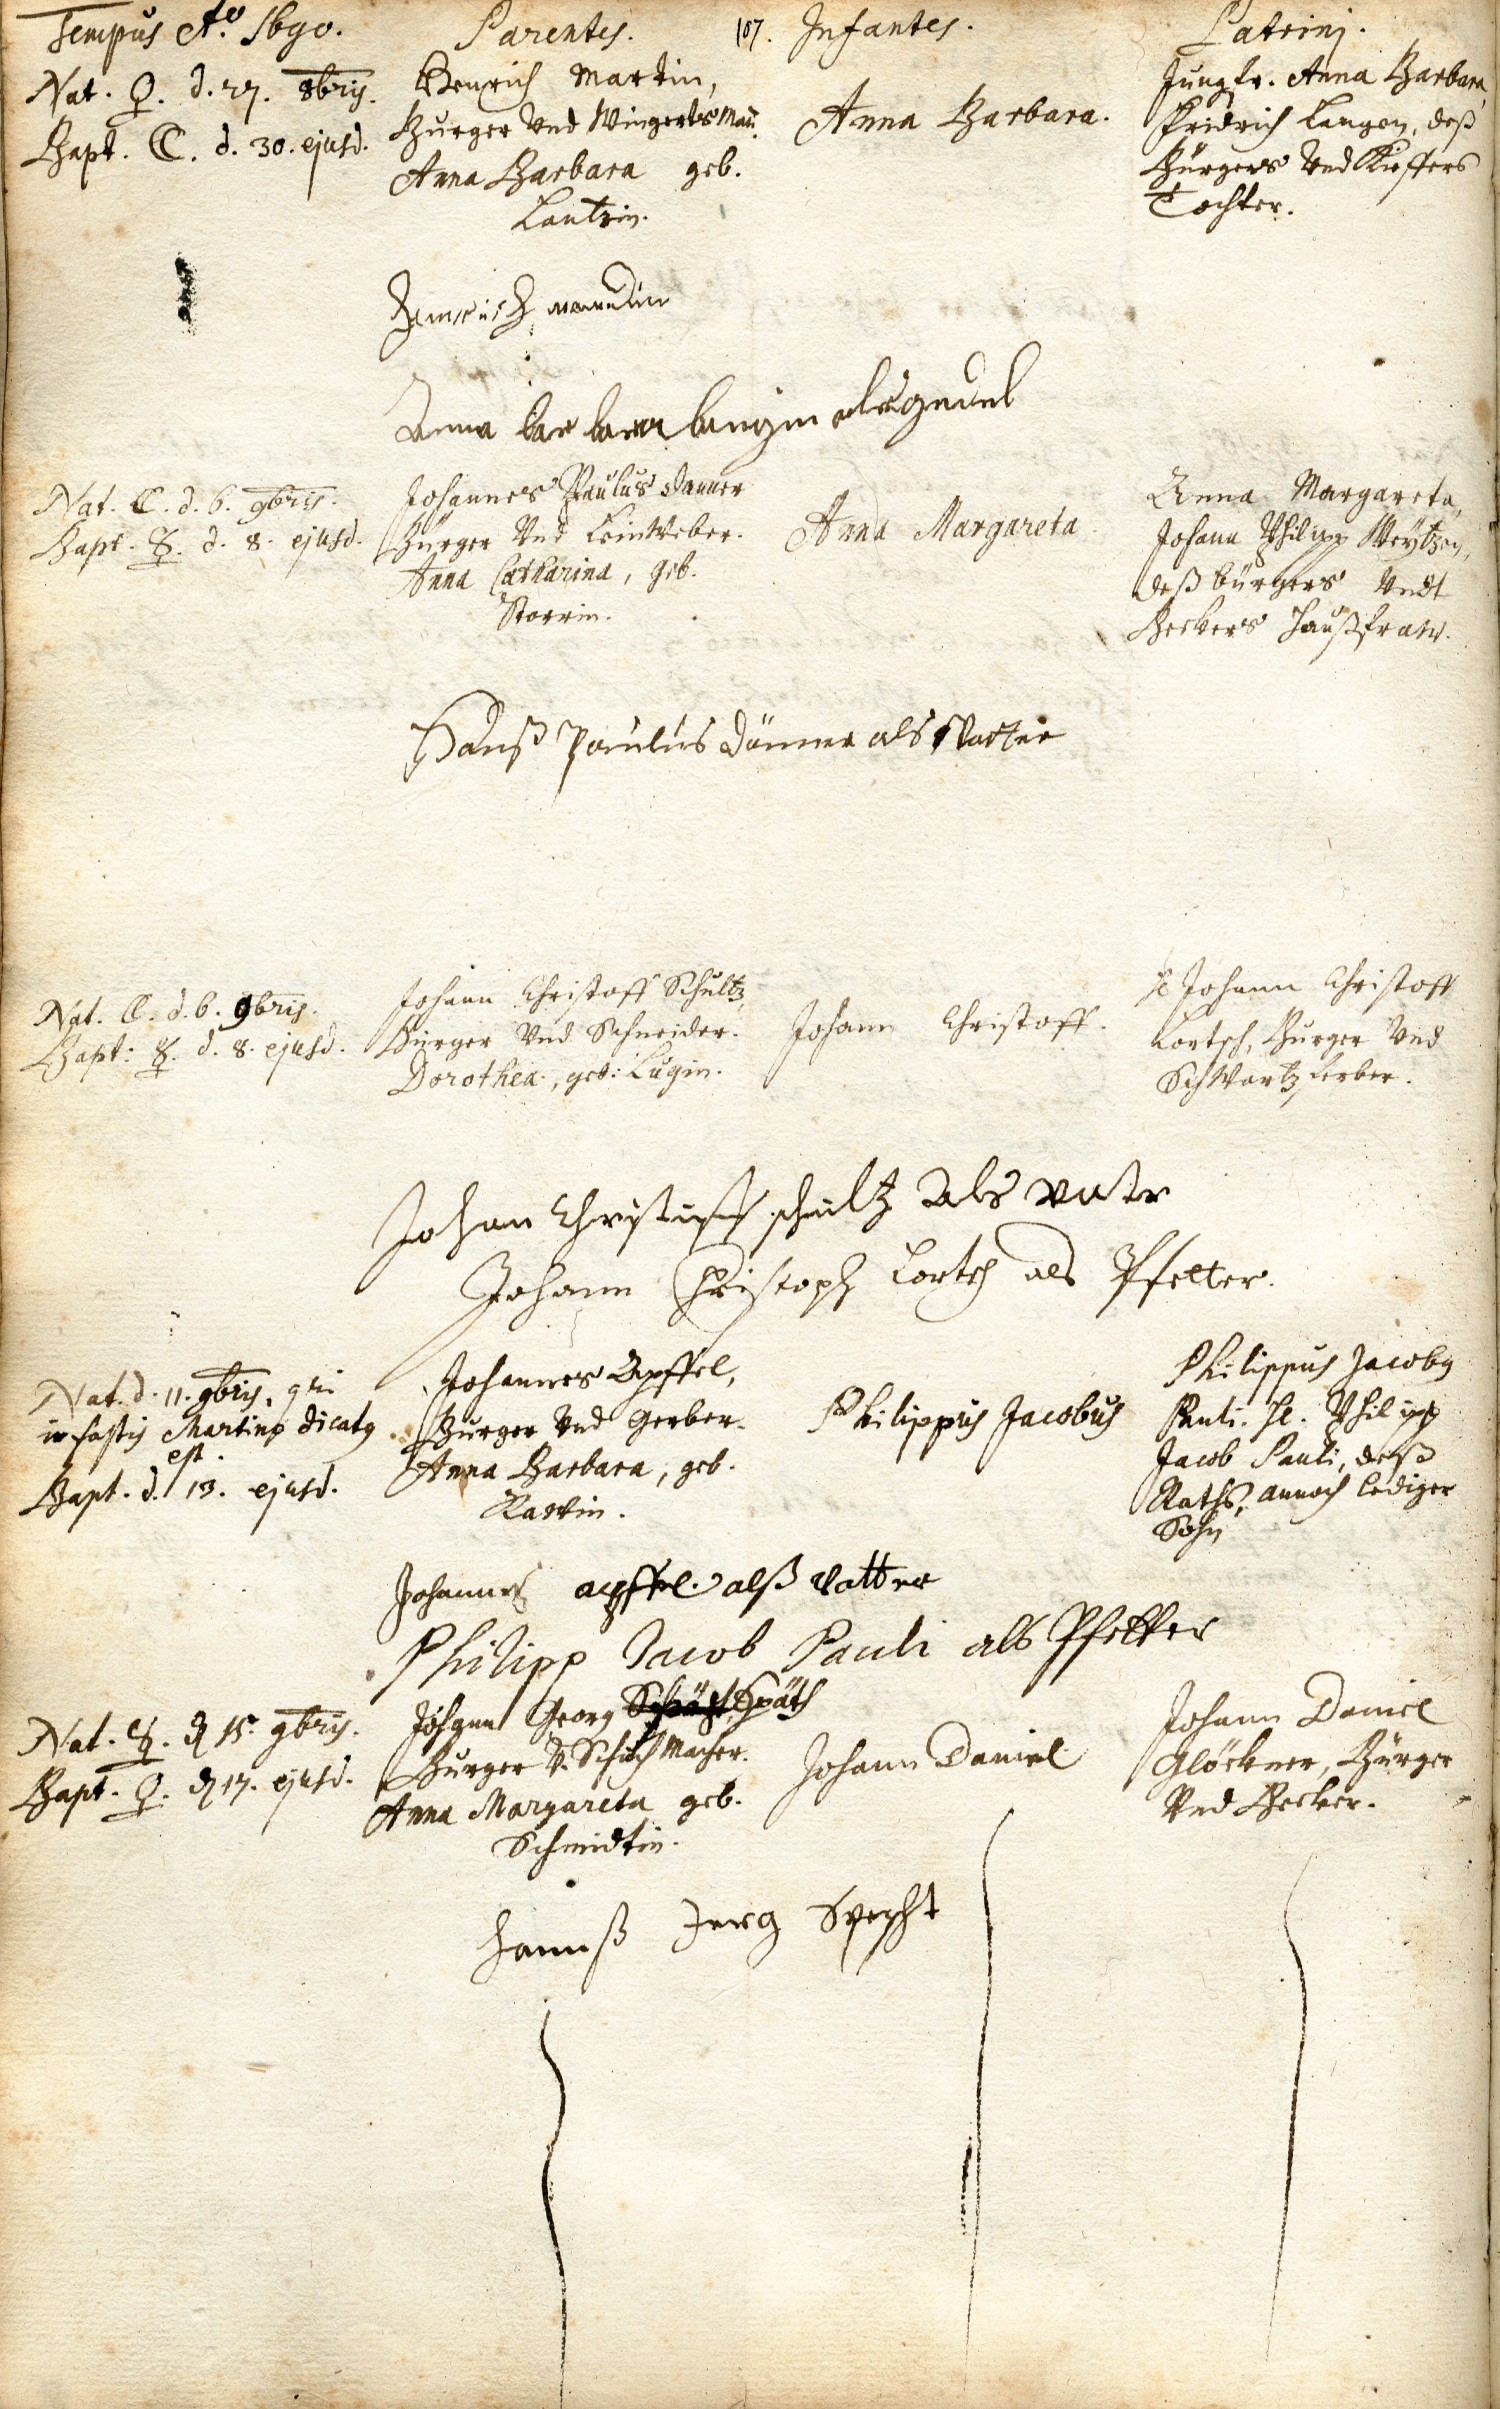 Tempus Ao. 1690.
Parentes.
107.
Infantes.
Patrini.
Nat. ♀. d. 27. 8bris.
Bapt. ☾. d. 30. ejusd.
Henrich Martin,
Burger Und Wingertsman.
Anna Barbara geb.
Lautzin.
Anna Barbara.
Jungfr. Anna Barbara,
Fridrich Langen, deß
Bürgers Und Kieffers
Tochter.
Henrich
Anna barbara langin als gedel
Nat. ☾. d. 6. 9bris.
Bapt. ☿. d. 8. ejusd.
Johannes Paulus Danner
Bürger Und Leinweber.
Anna Catharina, geb.
Storrin.
Anna Margareta
Anna Margareta,
Johann Philipp Weytzen,
deß bürgers Undt
Beckers Haußfraw.
Hanß Paulus Danner als Vatter
Nat. ☾. d. 6. 9bris.
Bapt: ☿. d. 8. ejusd.
Johann Christoff Schultz,
Bürger Und Schneider.
Dorothea, geb: Lugin.
Johann Christoff.
H. Johann Christoff
Lortsch, Burger Und
Schwartz ferber.
Johan Christoff schultz Als vatr
Johann Christoph Lortsch als Pfetter.
Nat. d. 11. 9bris, qui
in fastis Martino dicatq
est.
Bapt. d. 13. ejusd.
Johannes Apffel,
Burger Und Gerber.
Anna Barbara, geb.
Philippus Jacobus
Philippus Jacobq
Pauli. H. Philipp
Jacob Pauli, deß
Raths, annoch lediger
Sohn
Johannes apffel. alß Vatter
Philipp Jacob Pauli als Pfetter
Nat. ☿. d 15. 9bris.
Bapt. ♀. d 17. ejusd.
Johann Georg Späth
Burger V. Schuchmacher.
Anna Margareta geb.
Schmidtin.
Johann Daniel
Johann Daniel
Glöckner, Bürger
Und Becker.
Hannß Jerg Specht